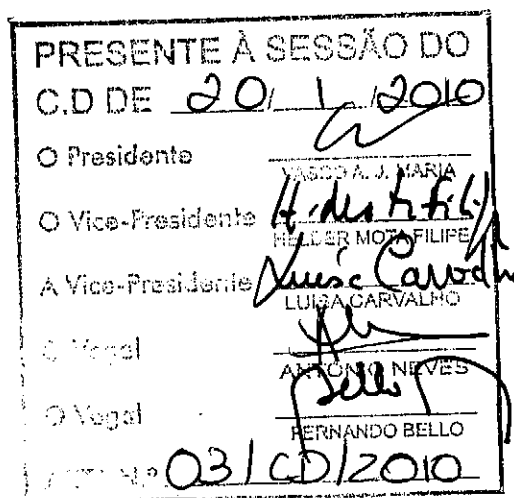 PRESENTE À SESSÃO DO
C.D DE 20/ 1 /2010
O Presidente
VASCO A. J. MARIA
O Vice-Presidente
HELDER MOTA FILIPE
A Vice-Presidente Luísa Carvalho
LUISA CARVALHO
O Vogal
ANTÓNIO NEVES
Bello
O Vogal
FERNANDO BELLO
N.º 03/CD/2010